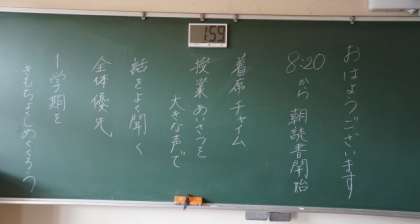 おはようございます
8:20から 朝読書開始
着席 チャイム
授業 あいさつを
大きな声で
話をよく聞く
全体優先
1学期を
きもちよくしめくくろう
159